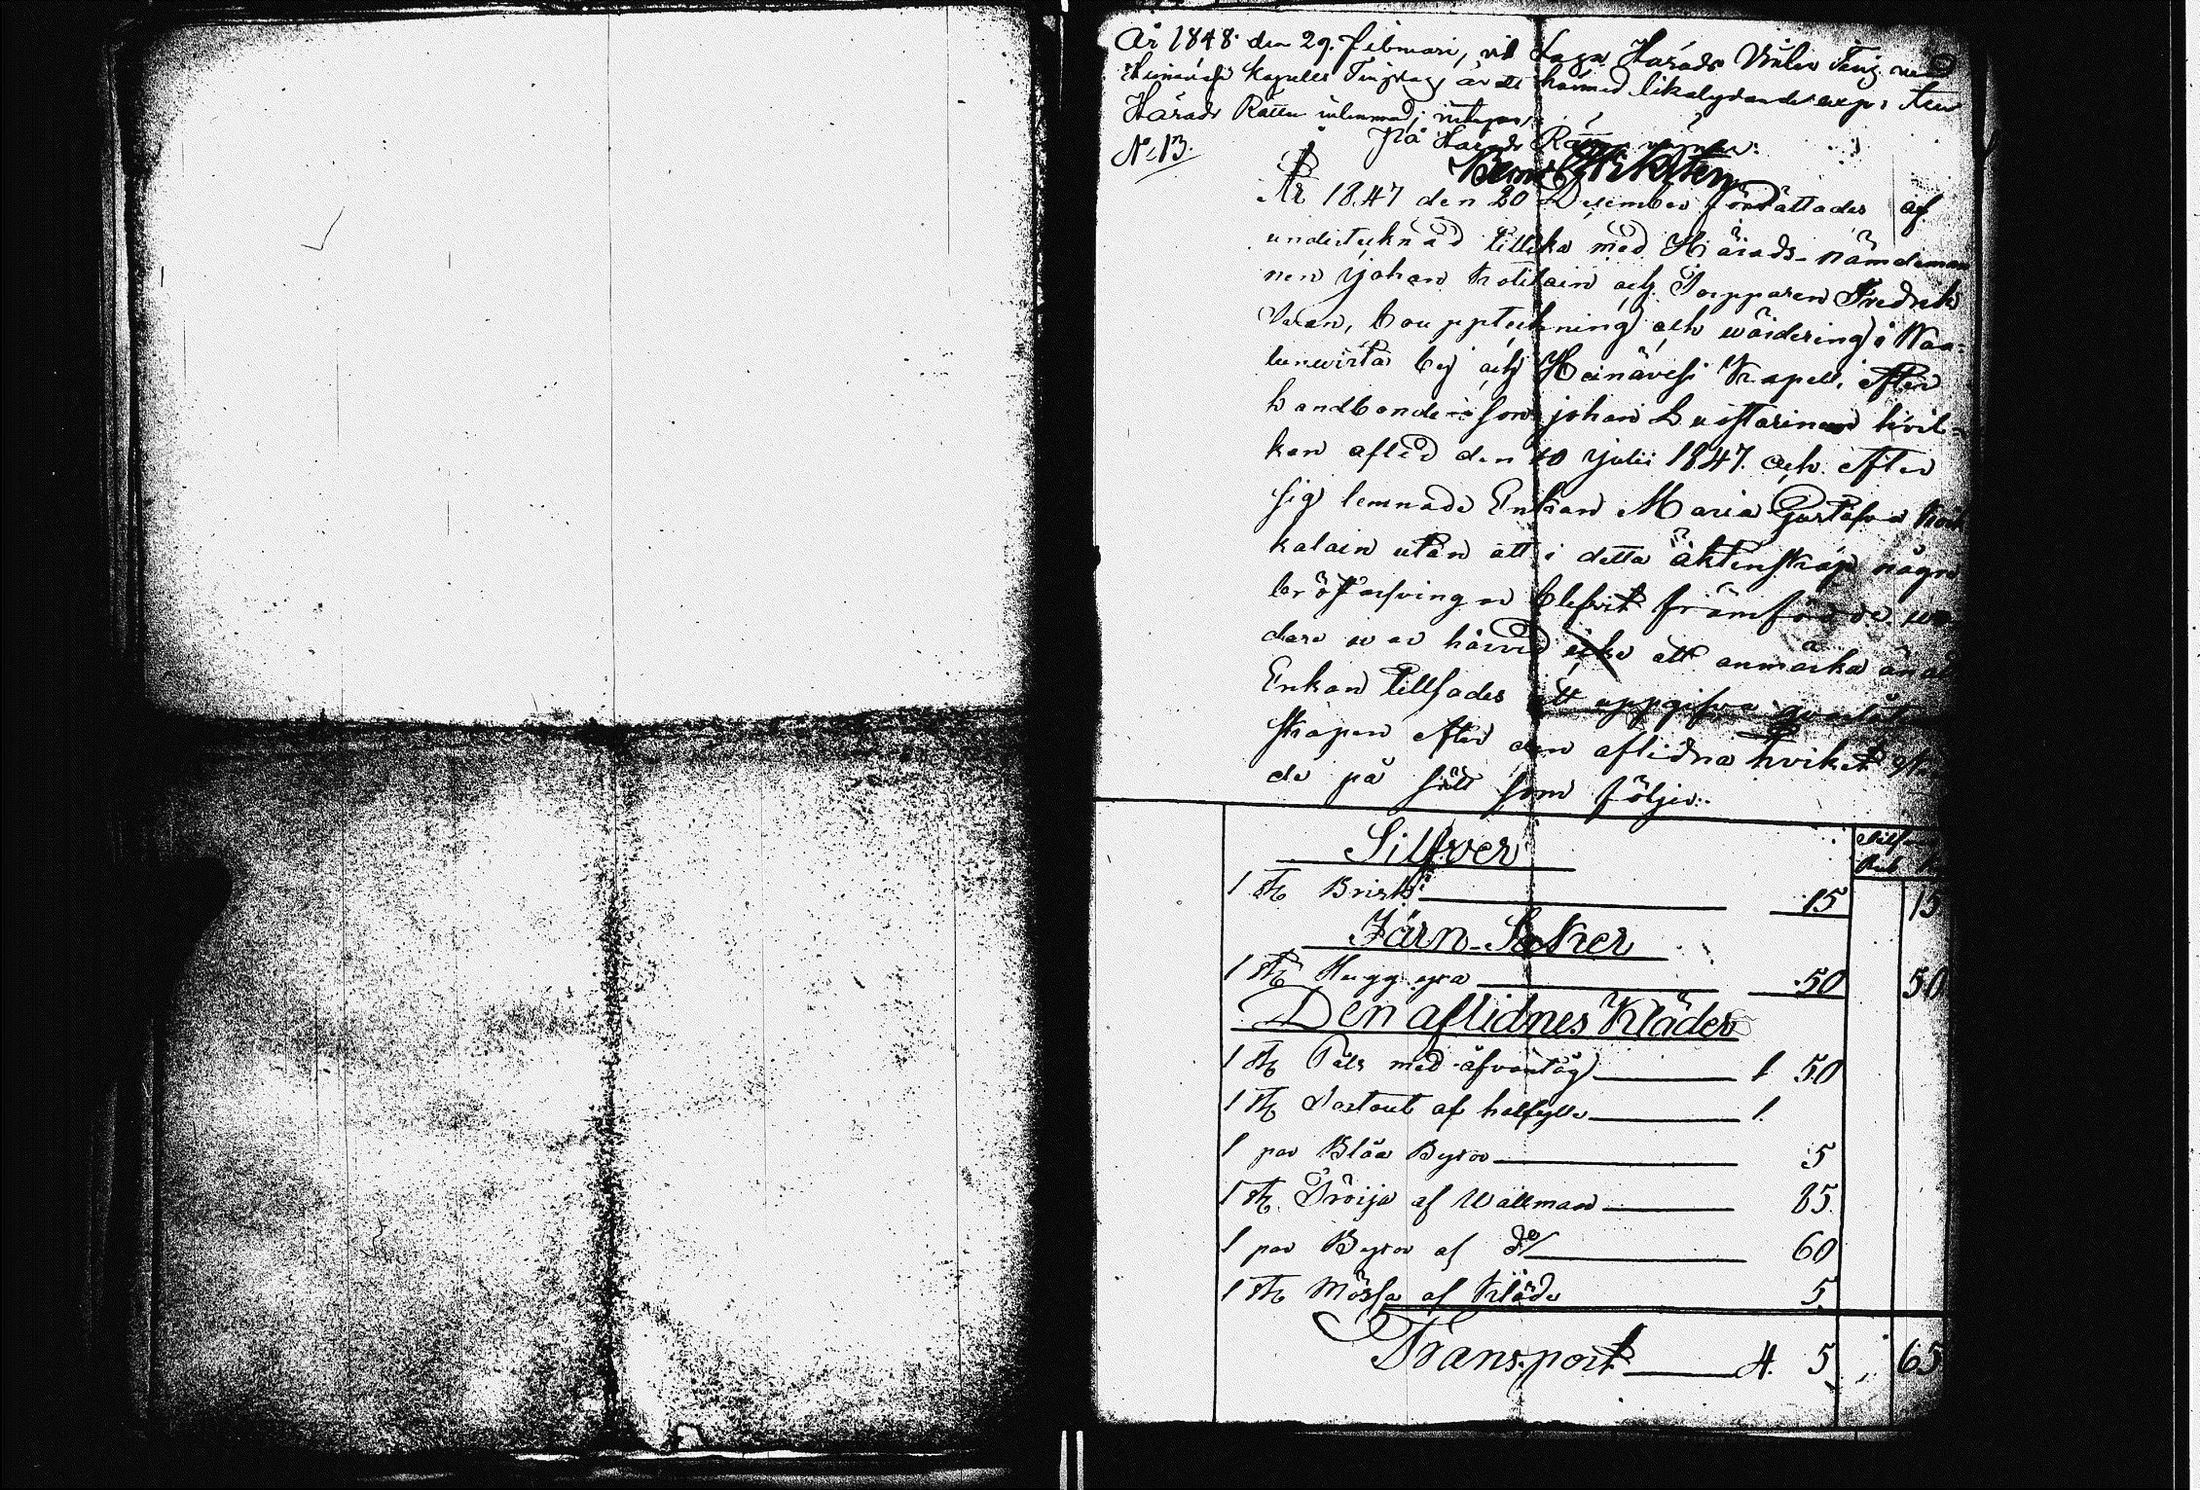 År 1848 den 29. februari, vid Laga Härads Vinter Ting med
Heinävesi Kapells Tingslag, är ett härmed likalydande exp:
Härads Rätten inlemnad; intygar,
På Härads Rättens vägnar:
No 13.
År 1847 den 20 December förrättades af
undertecknad tillika med Härads-nämdeman
nen Johan Kotilain och Torpparen Fredrik
bouppteckning och wärdering i
by och Heinävesi Kapell, efter
landbonde-sonen Johan Lustarinen hvil-
ken afled den 10 Julii 1847. och efter
sig lemnade Enkan Maria Gustafva
kalain utan att i detta äktenskap någre
bröstarfvingar blefvit framfödde
dare war härvid icke att anmärka än att
Enkan tillsades att uppgifva qvarlåten
skapen efter den aflidna hvilket
de på sätt som följer:
Silfver
1 St. Brisk 15 15
Järn-Saker
1 St. Hugg yxa 50 50
Den aflidnes Kläder
1 St. Päls med 1 50
1 St. Sortout af halfylle 1
1 par Blåa Byxor 5
1 St. Tröija af Wallman 85
1 par Byxor af do 60
1 St. Mössa af Kläde 5
Transport 4. 5 65